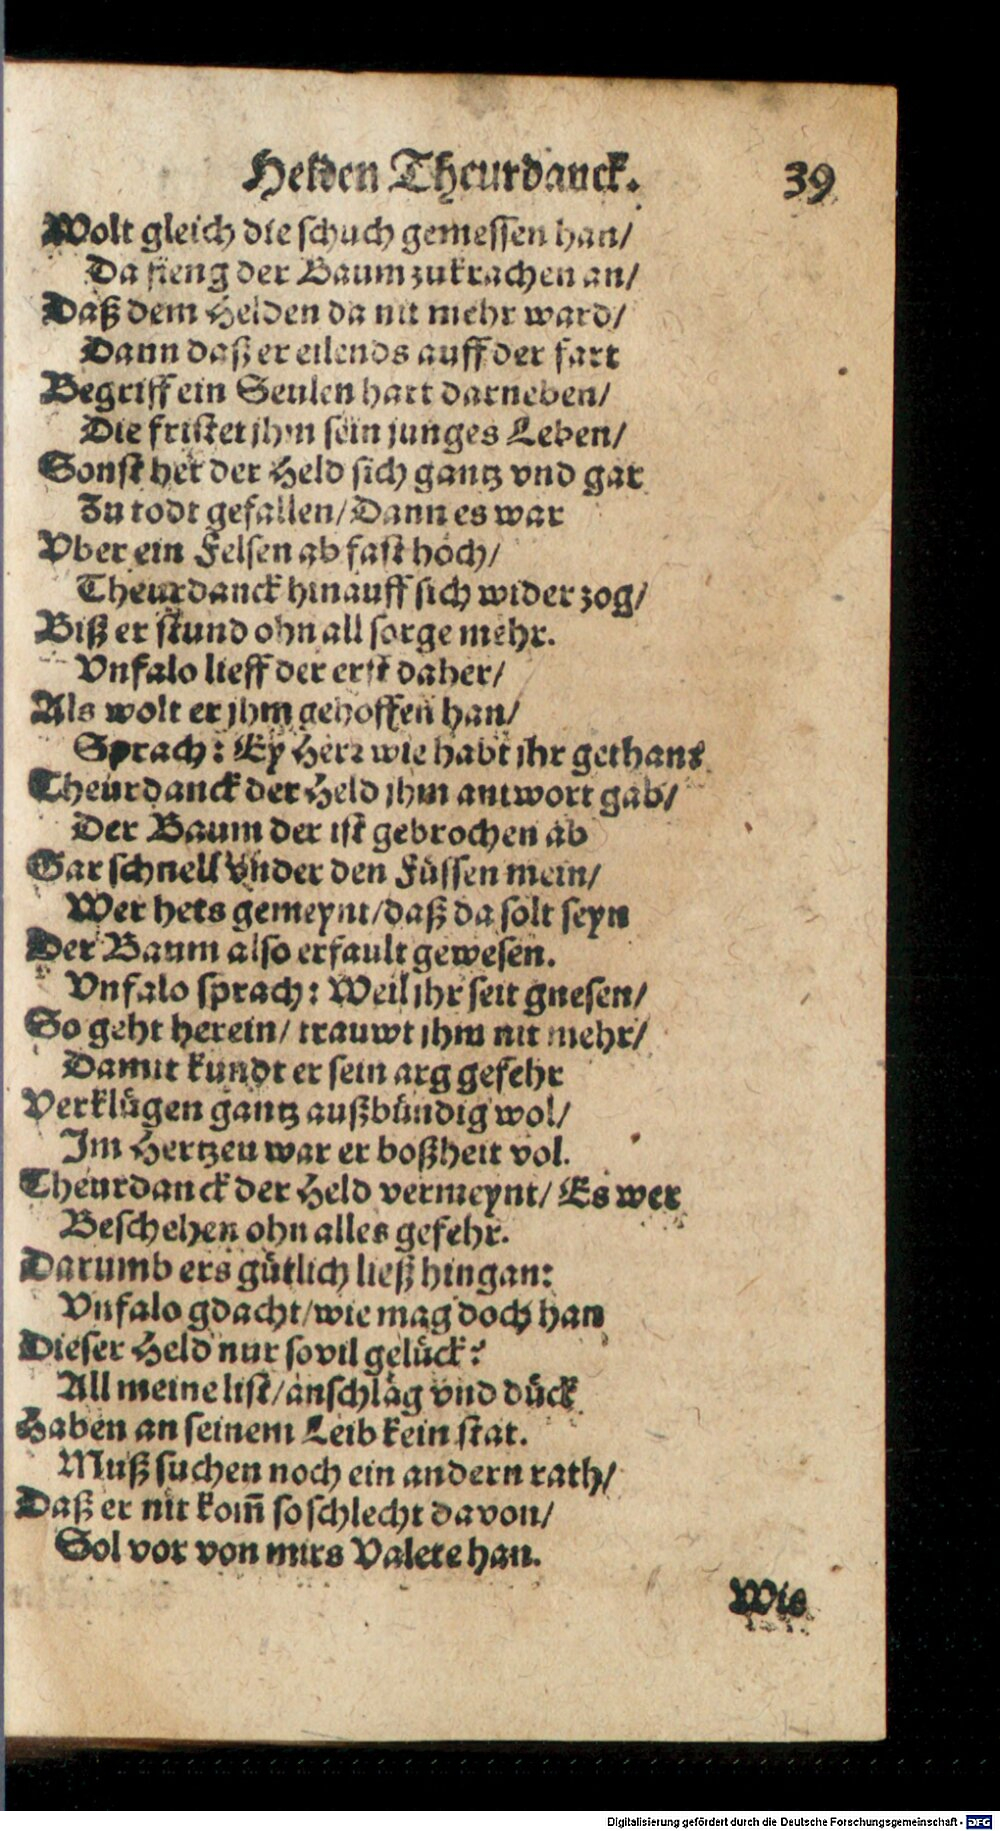 Helden Theurdanck. 39
Wolt gleich die schuch gemessen han/
Da fieng der Baum zukrachen an/
Daß dem Helden da nit mehr ward/
Dann daß er eilends auff der fart
Begriff ein Seulen hart darneben/
Die fristet jhm sein junges Leben/
Sonst het der Held sich gantz vnd gar
Zu todt gefallen/ Dann es war
Vber ein Felsen ab fast hoch/
Theurdanck hinauff sich wider zog/
Biß er stund ohn all sorge mehr.
Vnfalo lieff der erst daher/
Als wolt er jhm geholffen han/
Sprach: Ey Herr wie habt jhr gethan?
Theurdanck der Held jhm antwort gab/
Der Baum der ist gebrochen ab
Gar schnell vnder den Füssen mein/
Wer hets gemeynt/ daß da solt seyn
Der Baum also erfault gewesen.
Vnfalo sprach: Weil jhr seit gnesen/
So geht herein/ trauwt jhm nit mehr/
Damit kundt er sein arg gefehr
Verklügen gantz außbündig wol/
Im Hertzen war er boßheit vol.
Theurdanck der Held vermeynt/ Es wer
Beschehen ohn alles gefehr.
Darumb ers gütlich ließ hingan:
Vnfalo gdacht/ wie mag doch han
Dieser Held nur sovil gelück?
All meine list/ anschläg vnd dück
Haben an seinem Leib kein stat.
Muß suchen noch ein andern rath/
Daß er nit kom̄ so schlecht davon/
Sol vor von mirs Valete han.
Wie
Digitalisierung gefördert durch die Deutsche Forschungsgemeinschaft - DFG